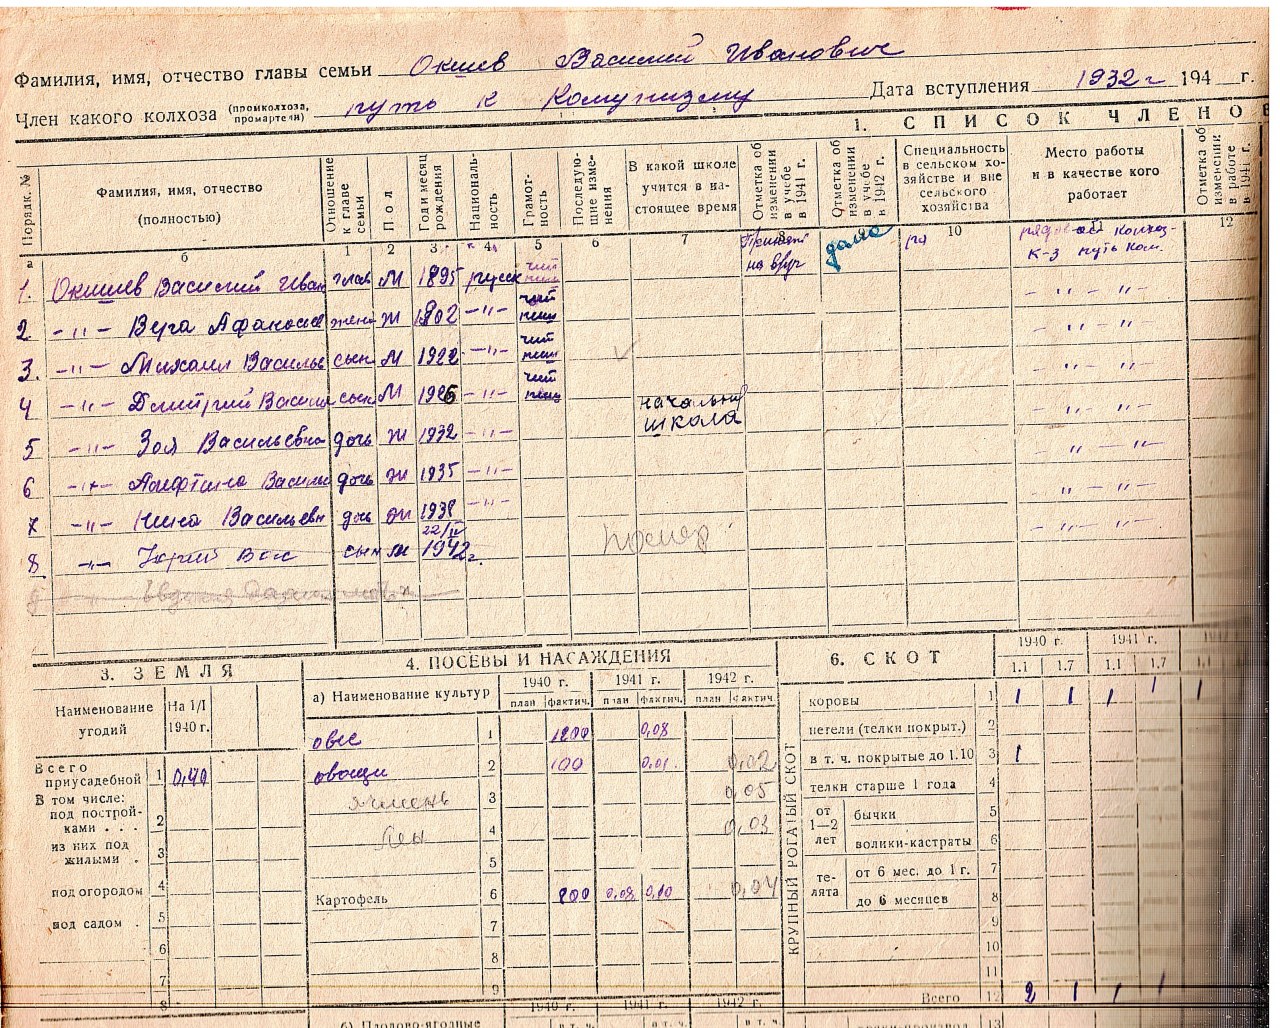 Фамилия, имя, отчество главы семьи Окишев Василий Иванович
Член какого колхоза (промколхоза, промартели) путь к Комунизму Дата вступления 1932 г 194 г.
1. СПИСОК ЧЛЕНОВ
Порядк. № Фамилия, имя, отчество (полностью) Отношение к главе семьи Пол Год и месяц рождения Националь-ность Грамот-ность Последую-щие изме-нения В какой школе учится в на-стоящее время Отметка об изменении в учебе в 1941 г. Отметка об изменении в учебе в 1942 г. Специальность в сельском хо-зяйстве и вне сельского хозяйства Место работы и в качестве кого работает Отметка об изменении в работе в 1941 г.
а б 1 2 3 4 5 6 7 8 10 11 12
1. Окишев Василий Иван глав М 1895 русск чит пиш дома рядовой колхоз- к-з путь ком.
2 -"- Вера Афанасьев жена Ж 1902 -"- чит пиш - " - " -
3. -"- Михаил Васильев сын М 1922 -"- чит пиш - " - " -
4 -"- Дмитрий Васил сын М 1926 -"- чит пиш - " - " -
5 -"- Зоя Васильевна дочь Ж 1932 -"- начальная школа - " - " -
6 -"- Алифтина Василь дочь Ж 1935 -"- " - " -
7 -"- Нина Васильевн дочь Ж 1938 -"- " - " -
8 -"- Юрий Вас сын М 22/IV 1942 г. - " - " -
3. ЗЕМЛЯ
Наименование угодий На 1/I 1940 г.
Всего приусадебной 1 0,40
В том числе:
под построй-ками . . . 2
из них под жилыми . 3
под огородом 4
под садом . 5
6
7
8
4. ПОСЕВЫ И НАСАЖДЕНИЯ
а) Наименование культур 1940 г. 1941 г. 1942 г.
план фактич. план фактич. план фактич.
овес 1 1200 0,08
овощи 2 100 0,01. 0,02
ячмень 3 0,05
4 0,03
5
Картофель 6 800 0,08 0,10 0,04
7
8
9
1940 г. 1941 г. 1942 г.
б) Плодово-ягодные в т. ч. в т. ч. в т. ч.
6. СКОТ
1940 г. 1941 г.
1.1 1.7 1.1 1.7 1.1
КРУПНЫЙ РОГАТЫЙ СКОТ
коровы 1 1 1 1 1 1
нетели (телки покрыт.) 2
в т. ч. покрытые до 1.10 3 1
телки старше 1 года 4
от 1—2 лет бычки 5
волики-кастраты 6
те-лята от 6 мес. до 1 г. 7
до 6 месяцев 8
9
10
11
Всего 12 2 1 1 1
13